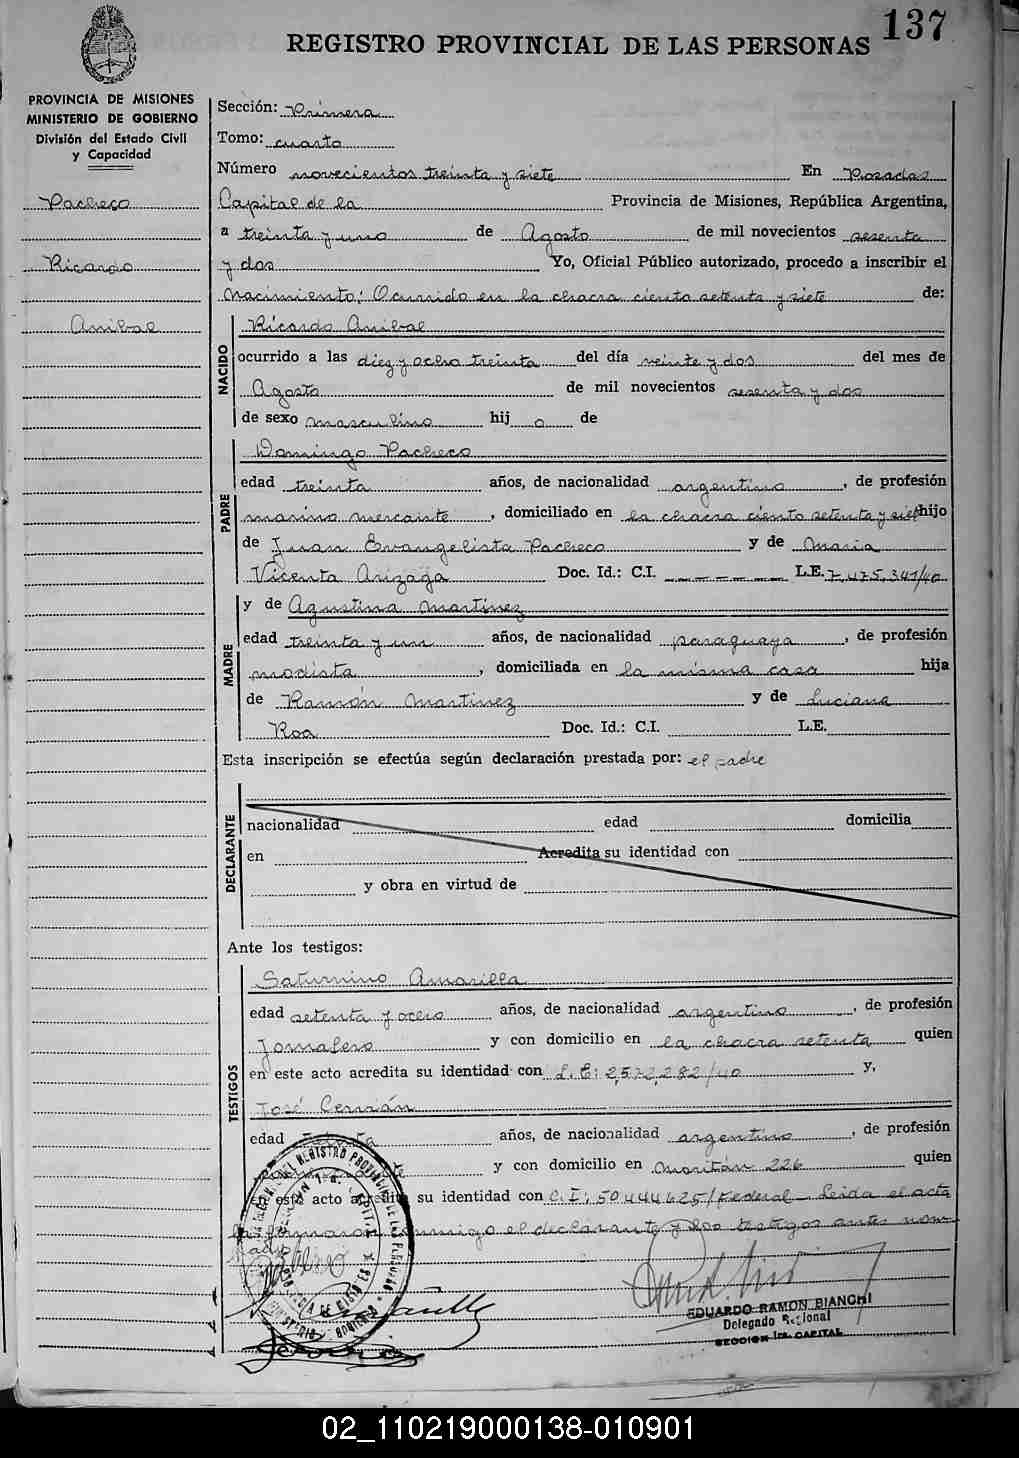 137
REGISTRO PROVINCIAL DE LAS PERSONAS
PROVINCIA DE MISIONES
MINISTERIO DE GOBIERNO
División del Estado Civil
y Capacidad
Pacheco
Ricardo
Anibal
Sección: Primera
Tomo: cuarto
Número novecientos treinta y siete En Posadas
Capital de la Provincia de Misiones, República Argentina,
a treinta y uno de Agosto de mil novecientos sesenta
y dos Yo, Oficial Público autorizado, procedo a inscribir el
nacimiento: Ocurrido en la chacra ciento setenta y siete de:
NACIDO
Ricardo Anibal
ocurrido a las diez y ocho treinta del día veinte y dos del mes de
Agosto de mil novecientos sesenta y dos
de sexo masculino hij o de
PADRE
Domingo Pacheco
edad treinta años, de nacionalidad argentino, de profesión
marino mercante, domiciliado en la chacra ciento setenta y siete hijo
de Juan Evangelista Pacheco y de Maria
Vicenta Arizaga Doc. Id.: C.I. L.E. 7,475,341/40
MADRE
y de Agustina Martinez
edad treinta y un años, de nacionalidad paraguaya, de profesión
modista, domiciliada en la misma casa hija
de Ramón Martinez y de Luciana
Roa Doc. Id.: C.I. L.E.
Esta inscripción se efectúa según declaración prestada por: el padre
DECLARANTE
nacionalidad edad domicilia
en Acredita su identidad con
y obra en virtud de
Ante los testigos:
TESTIGOS
Saturnino Amarilla
edad setenta y ocho años, de nacionalidad argentino, de profesión
Jornalero y con domicilio en la chacra setenta quien
en este acto acredita su identidad con L.E: 2,572,282/40 y,
José
edad años, de nacionalidad argentino, de profesión
y con domicilio en 226 quien
en este acto acredita su identidad con C.I: 50,444,625/Federal - Leida el acta
la firmaron conmigo el declarante y los testigos antes nom
EDUARDO RAMON BIANCHI
Delegado
SECCION 1ra. CAPITAL
02_110219000138-010901